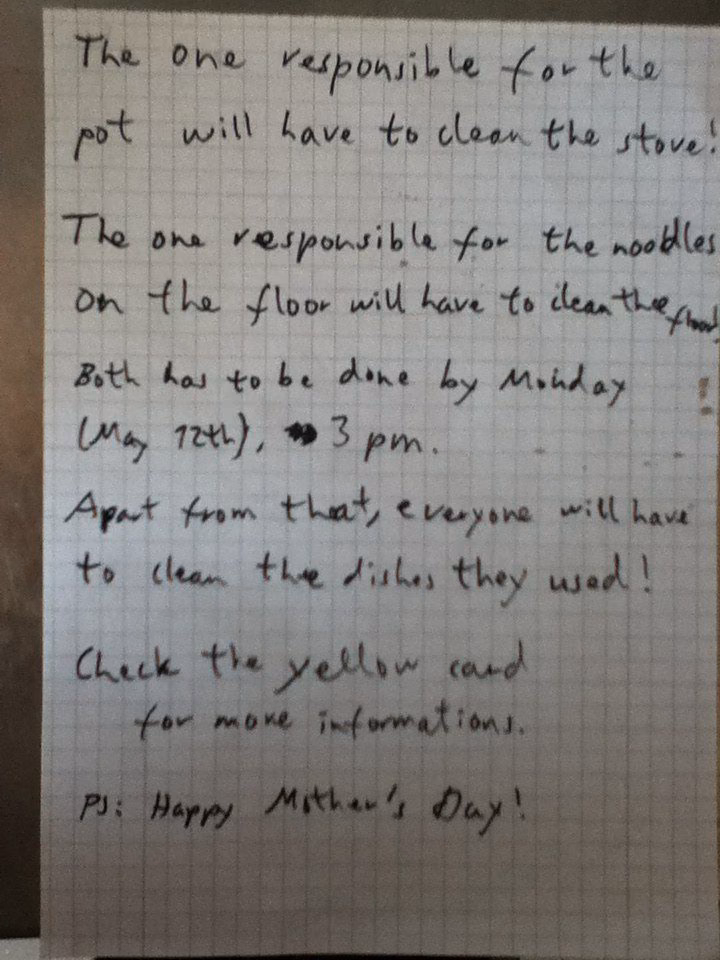 The one responsible for the
pot will have to clean the stove!
The one responsible for the noodles
on the floor will have to clean the floor!
Both has to be done by Monday
(May 12th), 3 pm.
Apart from that, everyone will have
to clean the dishes they used!
Check the yellow card
for more informations.
PS: Happy Mother's Day!